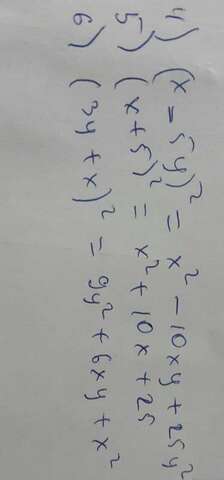 4) (x - 5y)² = x² - 10xy + 25y²
5) (x + 5)² = x² + 10x + 25
6) (3y + x)² = 9y² + 6xy + x²